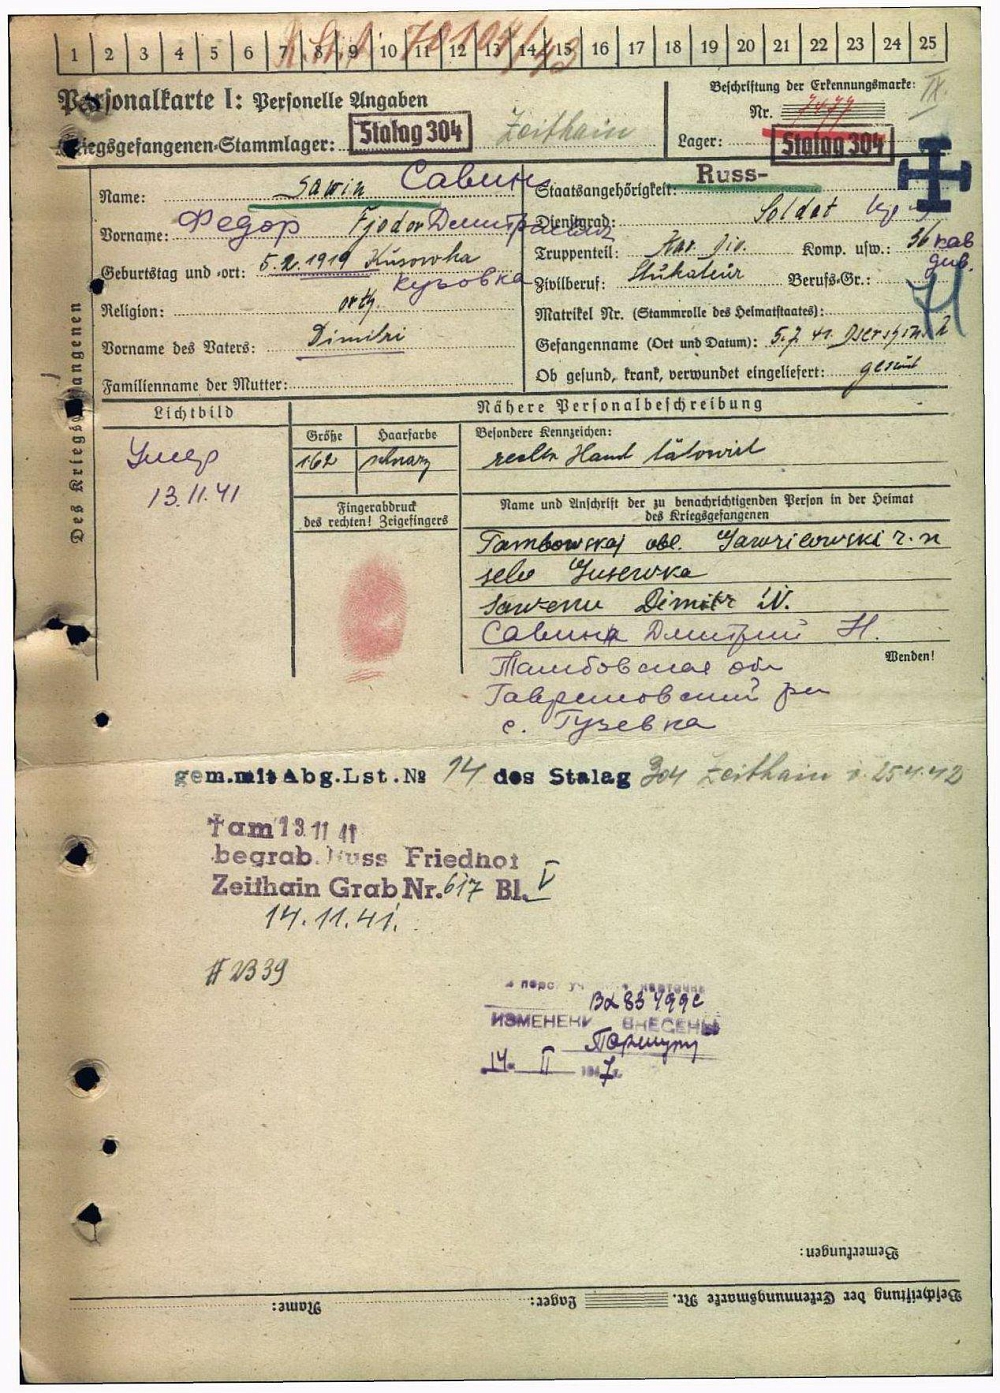 1 2 3 4 5 6 7 8 9 10 11 12 13 14 15 16 17 18 19 20 21 22 23 24 25
Personalkarte I: Personelle Angaben
Kriegsgefangenen-Stammlager: Stalag 304 Zeithain
Beschriftung der Erkennungsmarke: IV
Nr. 7479
Lager: Stalag 304
Des Kriegsgefangenen
Name: Sawin Савин
Vorname: Федор Fjodor Дмитриевич
Geburtstag und -ort: 5.2.1919 Kusowka
Кузовка
Religion: orth.
Vorname des Vaters: Dimitri
Familienname der Mutter:
Staatsangehörigkeit: Russ-
Dienstgrad: Soldat
Truppenteil: Kav. Div. Komp. usw.: 36 кав
див.
Zivilberuf: Stukateur Berufs-Gr.: 71
Matrikel Nr. (Stammrolle des Heimatstaates):
Gefangenname (Ort und Datum): 5.7.41
Ob gesund, krank, verwundet eingeliefert: gesund
Lichtbild
Умер
13.11.41
Nähere Personalbeschreibung
Größe Haarfarbe
162 schwarz
Besondere Kennzeichen:
rechte Hand tätowiert
Fingerabdruck
des rechten! Zeigefingers
Name und Anschrift der zu benachrichtigenden Person in der Heimat
des Kriegsgefangenen
Tambowskaj obl. Gawrilowski r.n
selo Gusewka
Sawenu Dimitr N.
Савина Дмитрий Н.
Тамбовская обл
Гавриловский рн
с. Гузевка
Wenden!
gem.mit Abg.Lst.№ 14 des Stalag 304 Zeithain v. 25.4.42
† am 13 11 41
begrab. Russ Friedhof
Zeithain Grab Nr. 617 Bl. V
14.11.41.
# 2339
ИЗМЕНЕНИЯ ВНЕСЕНЫ
14 II 1947 г.
Bemerkungen:
Beschriftung der Erkennungsmarke Nr. Lager: Name: